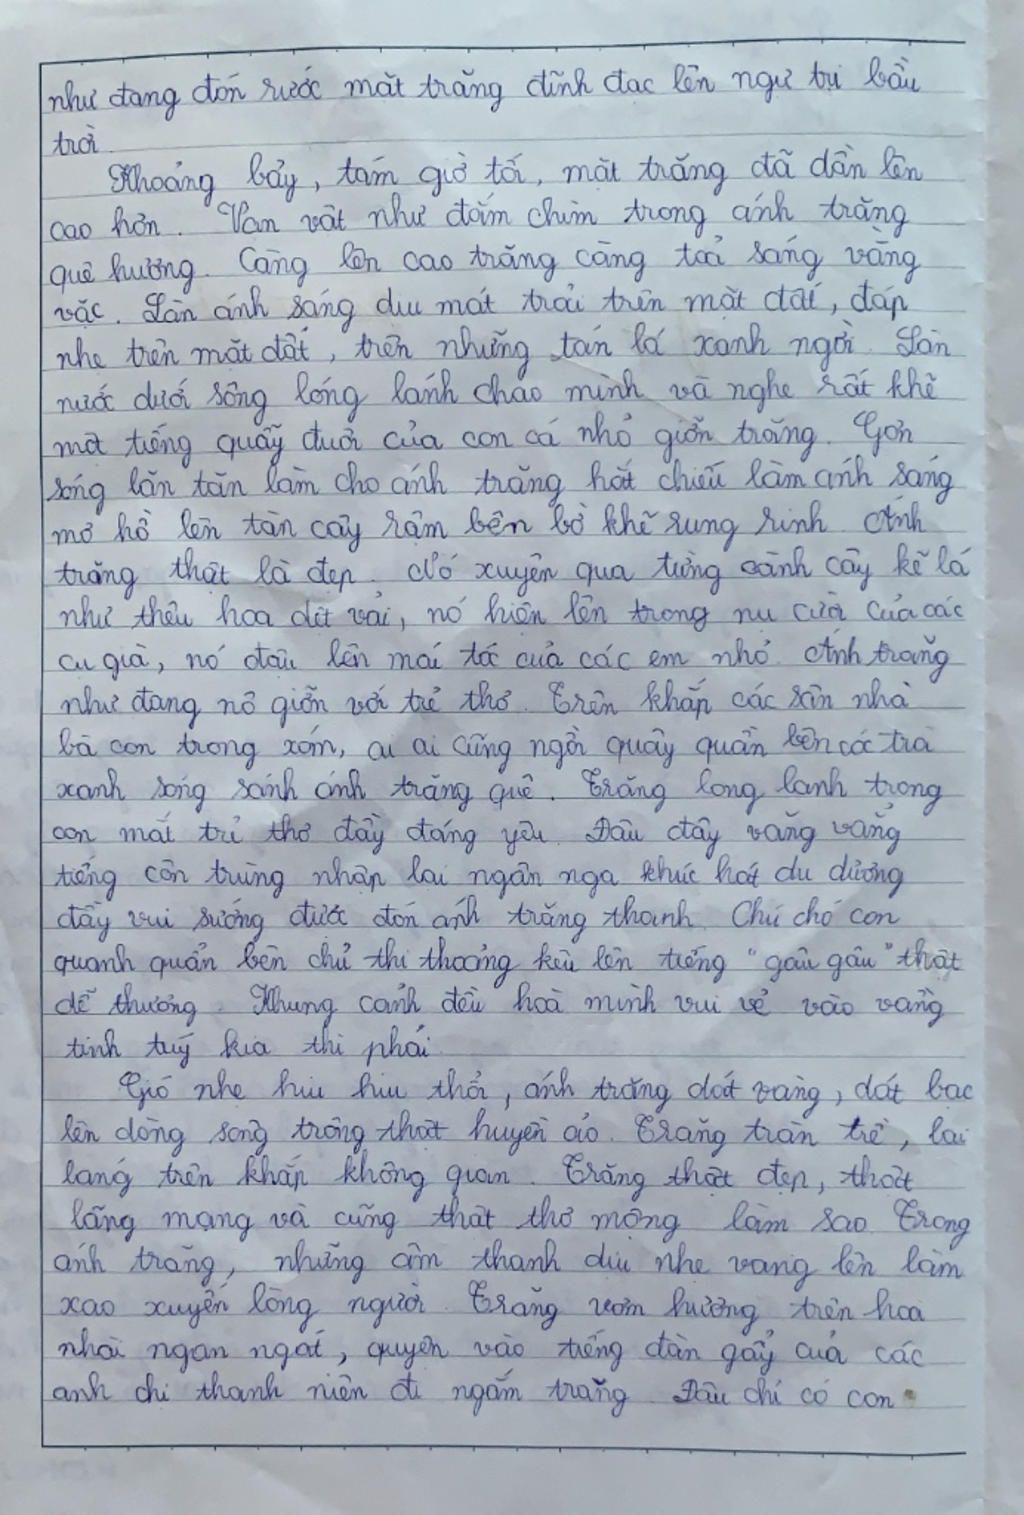 như đang đón rước mặt trăng đĩnh đạc lên ngự trị bầu
trời.
Khoảng bảy, tám giờ tối, mặt trăng đã dần lên
cao hơn. Vạn vật như đắm chìm trong ánh trăng
quê hương. Càng lên cao trăng càng toả sáng vằng
vặc. Làn ánh sáng dịu mát trải trên mặt đất, đáp
nhẹ trên mặt đất, trên những tán lá xanh ngời. Làn
nước dưới sông lóng lánh chao mình và nghe rất khẽ
một tiếng quẫy đuôi của con cá nhỏ giỡn trăng. Gợn
sóng lăn tăn làm cho ánh trăng hắt chiếu làm ánh sáng
mơ hồ lên tàn cây rậm bên bờ khẽ rung rinh. Ánh
trăng thật là đẹp. Nó xuyên qua từng cành cây kẽ lá
như thêu hoa dệt vải, nó hiện lên trong nụ cười của các
cụ già, nó đậu lên mái tóc của các em nhỏ. Ánh trăng
như đang nô giỡn với trẻ thơ. Trên khắp các sân nhà
bà con trong xóm, ai ai cũng ngồi quây quần bên cốc trà
xanh sóng sánh ánh trăng quê. Trăng long lanh trong
con mắt trẻ thơ đầy đáng yêu. Đâu đây văng vẳng
tiếng côn trùng nhập lại ngân nga khúc hát du dương
đầy vui sướng được đón ánh trăng thanh. Chú chó con
quanh quẩn bên chủ thi thoảng kêu lên tiếng "gâu gâu" thật
dễ thương. Khung cảnh đều hoà mình vui vẻ vào vầng
tinh tuý kia thì phải.
Gió nhẹ hiu hiu thổi, ánh trăng dát vàng, dát bạc
lên dòng sông trông thật huyền ảo. Trăng tràn trề, lai
láng trên khắp không gian. Trăng thật đẹp, thật
lãng mạng và cũng thật thơ mộng làm sao. Trong
ánh trăng, những âm thanh dịu nhẹ vang lên làm
xao xuyến lòng người. Trăng vờn hương trên hoa
nhài ngan ngát, quyện vào tiếng đàn gẩy của các
anh chị thanh niên đi ngắm trăng. Đâu chỉ có con